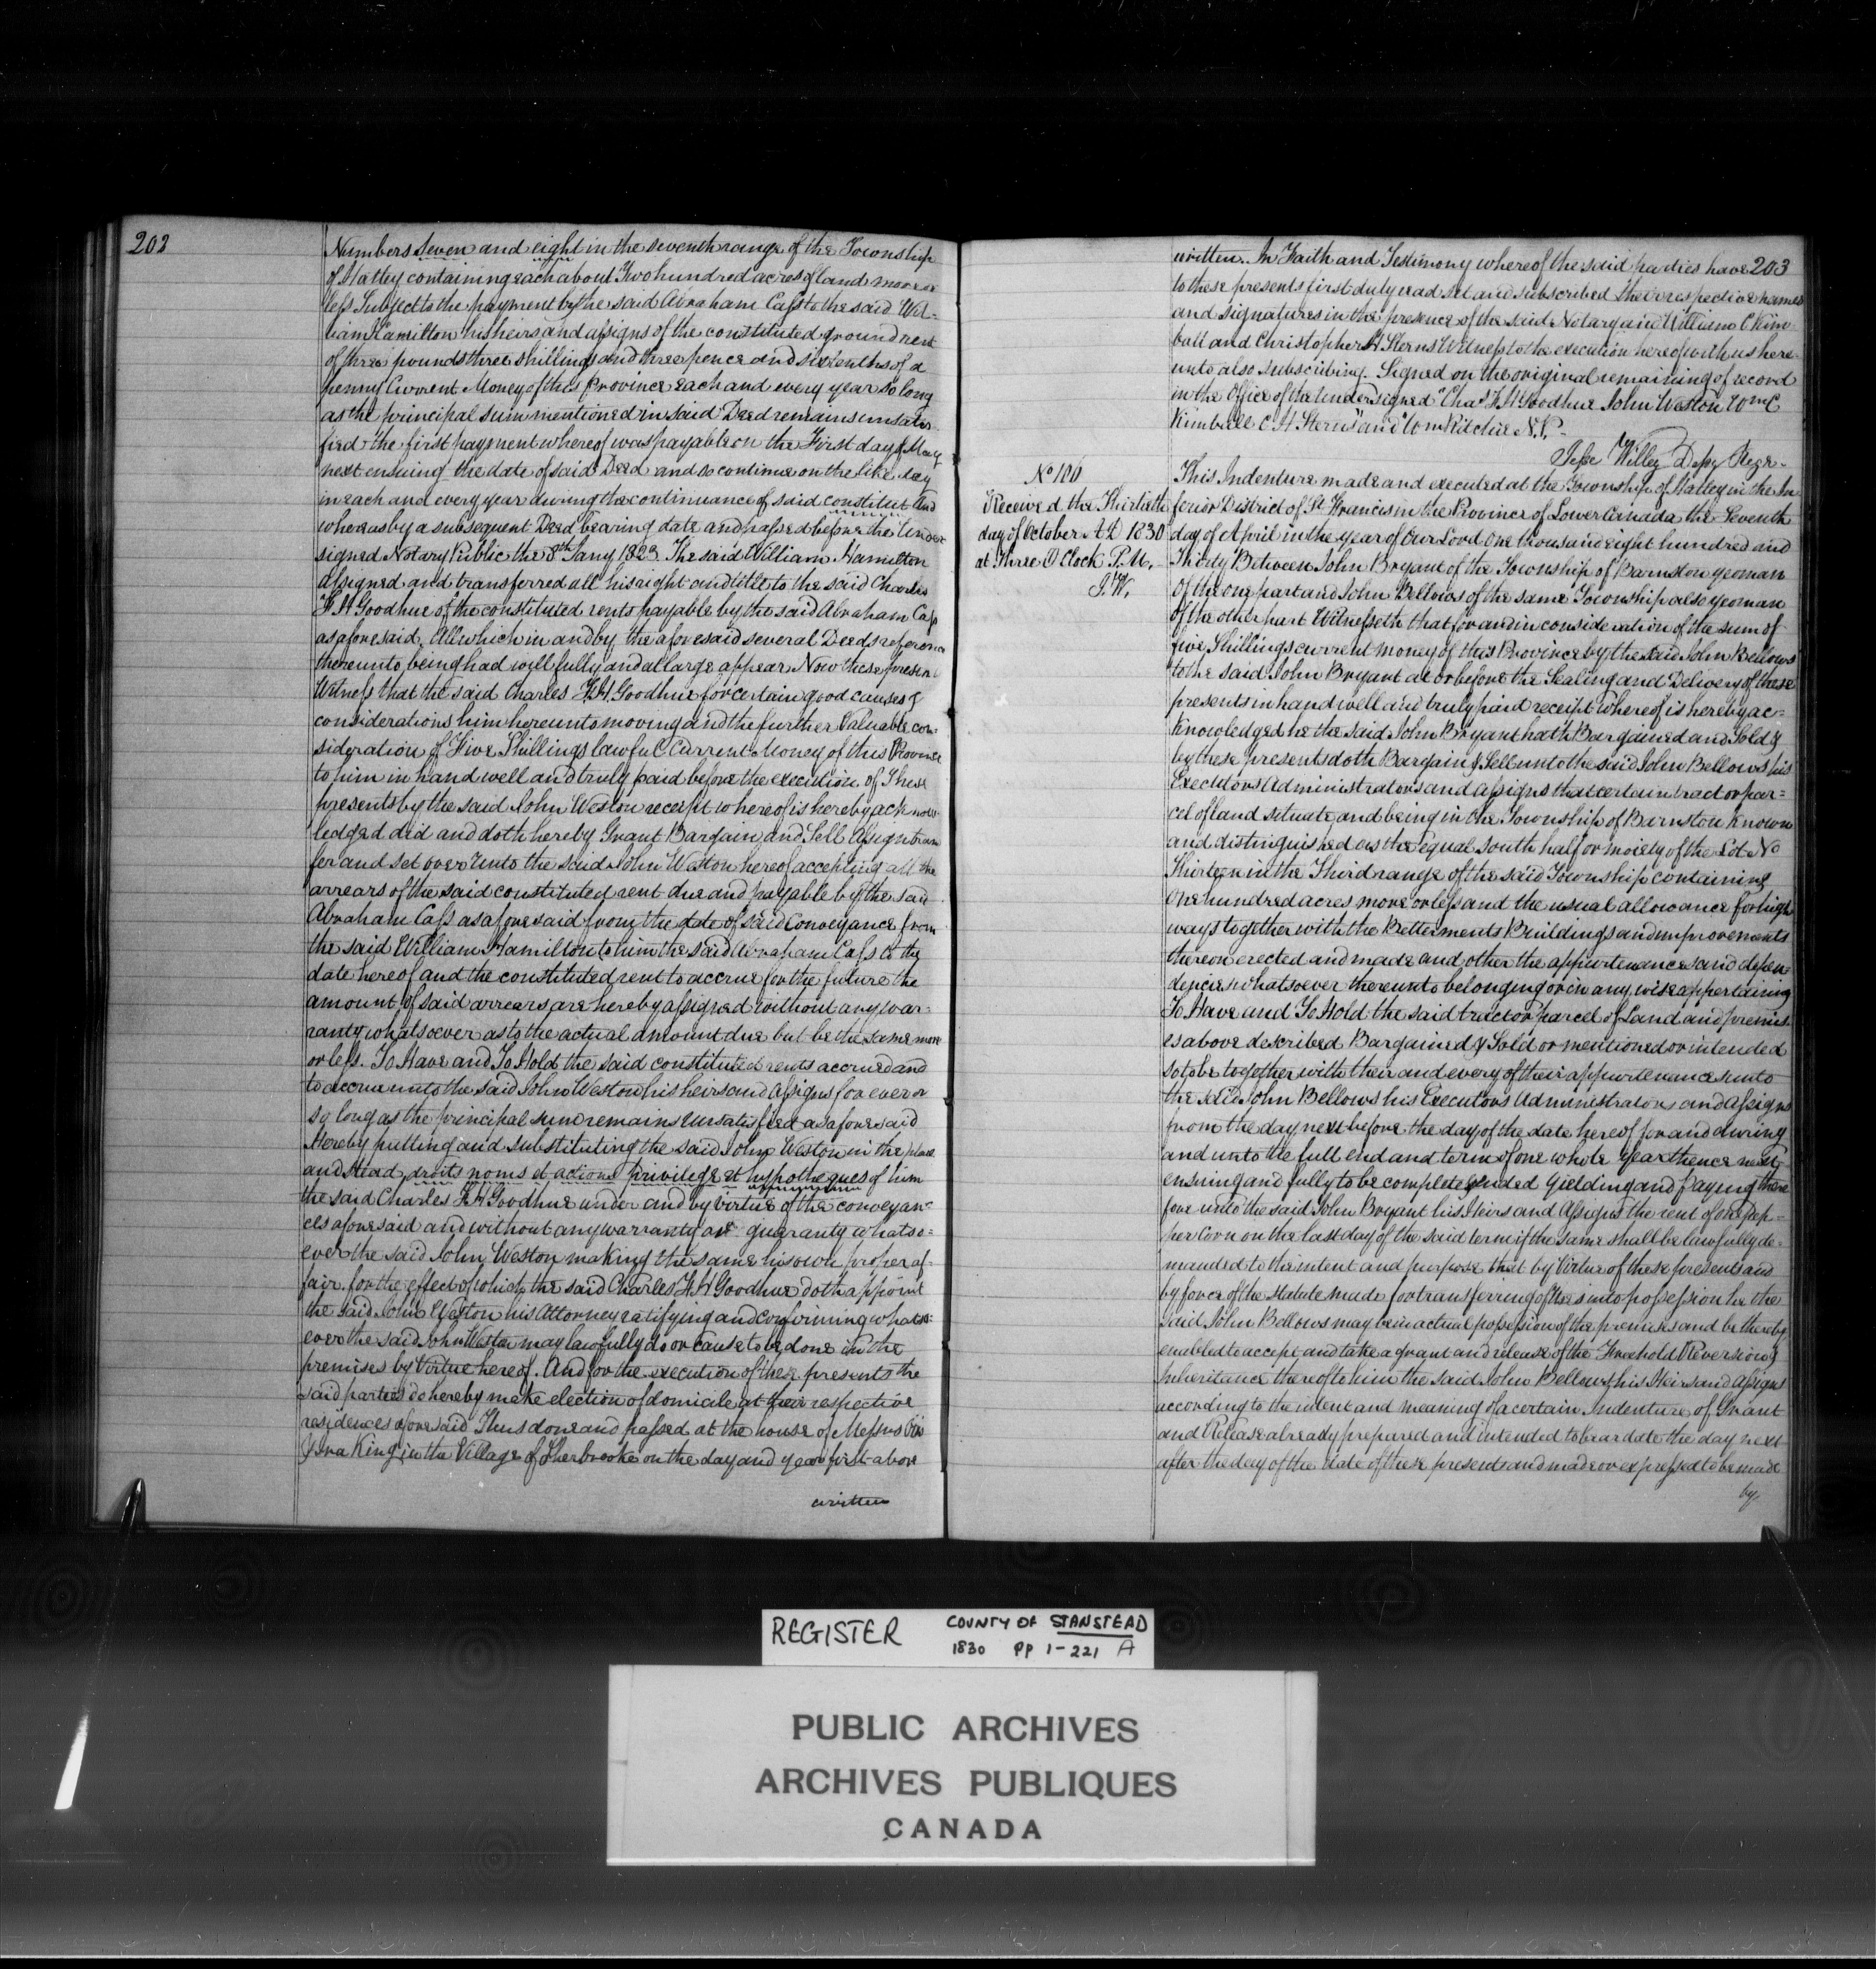 202
Numbers Seven and eight in the seventh range of the Township
of Hatley containing each about Two hundred acres of land more or
less Subject to the payment by the said Abraham Cass to the said Wil=
liam Hamilton his heirs and assigns of the constituted ground rent
of three pounds three shillings and three pence and six tenths of a
penny Current Money of this Province each and every year so long
as the principal sum mentioned in said Deed remains unsatis-
fied the first payment whereof was payable on the First day of May
next ensuing the date of said Deed and so continue on the like day
in each and every year during the continuance of said constitut And
whereas by a subsequent Deed bearing date and passed before the Under
signed Notary Public the 8th Jany 1823 The said William Hamilton
assigned and transferred all his right and title to the said Charles
F H Goodhue of the constituted rents payable by the said Abraham Cass
as aforesaid. All which in and by the aforesaid several Deeds reference
thereunto being had will fully and at large appear Now these present
Witness that the said Charles F H Goodhue for certain good causes &
considerations him hereunto moving and the further Valuable con=
sideration of Five Shillings lawful Current Money of this Province
to him in hand well and truly paid before the execution of These
presents by the said John Weston receipt whereof is hereby acknow-
ledged did and doth hereby Grant Bargain and Sell Assign trans
fer and set over Unto the said John Weston hereof accepting all the
arrears of the said constituted rent due and payable by the said
Abraham Cass as aforesaid from the date of said Conveyance from
the said William Hamilton to him the said Abraham Cass to the
date hereof and the constituted rent to accrue for the future the
amount of said arrears are hereby assigned without any war=
ranty whatsoever as to the actual amount due but be the same more
or less. To Have and To Hold the said constituted rents accrued and
to accrue unto the said John Weston his heirs and Assigns for ever or
so long as the principal sum remains Unsatisfied as aforesaid
Hereby putting and Substituting the said John Weston in the place
and Stead droits noms et actions privilege et hypotheques of him
the said Charles F H Goodhue under and by virtue of the conveyan=
ces aforesaid and without any warranty or guaranty whatso=
ever the said John Weston making the same his own proper af=
fair. for the effect of which the said Charles F H Goodhue doth appoint
the said John Weston his Attorney ratifying and confirming whatso=
ever the said John Weston may lawfully do or cause to be done in the
premises by Virtue hereof. And for the execution of these presents the
said parties do hereby make election of domicile at their respective
residences aforesaid Thus done and passed at the house of Messrs
& Ira King in the Village of Sherbrooke on the day and year first above
written
written. In Faith and Testimony whereof the said parties have 203
to these presents first duly read set and subscribed their respective names
and signatures in the presence of the said Notary and William C Kim
ball and Christopher H Sterns Witness to the execution hereof with us here-
unto also subscribing. Signed on the original remaining of record
in the Office of the Undersigned "Chas F H Goodhue John Weston Wm C
Kimball C H Sterns" and "Wm Ritchie N.P.
Jesse Willey Depy Regr.
No 106
Received the Thirtieth
day of October A D 1830
at Three O Clock P.M.
J.W.
This Indenture made and executed at the Township of Hatley in the In
ferior District of St Francis in the Province of Lower Canada the Seventh
day of April in the year of Our Lord One thousand eight hundred and
Thirty Between John Bryant of the Township of Barnston yeoman
Of the one part and John Bellows of the same Township also yeoman
Of the other part Witnesseth that for and in consideration of the sum of
five Shillings current money of this Province by the said John Bellows
to the said John Bryant at or before the Sealing and Delivery of these
presents in hand well and truly paid receipt whereof is hereby ac=
knowledged he the said John Bryant hath Bargained and Sold &
by these presents doth Bargain & Sell unto the said John Bellows his
Executors Administrators and Assigns that certain tract or par=
cel of land situate and being in the Township of Barnston Known
and distinguished as the equal South half or moiety of the Lot No
Thirteen in the Third range of the said Township containing
One hundred acres more or less and the usual allowance for high
ways together with the Betterments Buildings and improvements
thereon erected and made and other the appurtenances and depen=
dencies whatsoever thereunto belonging or in any wise appertaining
To Have and To Hold the said tract or parcel of Land and premis
es above described Bargained & Sold or mentioned or intended
so to be together with their and every of their appurtenances unto
the said John Bellows his Executors Administrators and Assigns
from the day next before the day of the date hereof for and during
and unto the full end and term of one whole year thence next
ensuing and fully to be complete & ended Yielding and Paying there
fore unto the said John Bryant his Heirs and Assigns the rent of one pep=
per Corn on the last day of the said term if the same shall be lawfully de=
manded to the intent and purpose that by Virtue of these presents and
by force of the Statute made for transferring of Uses into possession he the
said John Bellows may be in actual possession of the premises and be thereby
enabled to accept and take a grant and release of the Freehold Reversion &
Inheritance thereof to him the said John Bellows his Heirs and Assigns
according to the intent and meaning of a certain Indenture of Grant
and Release already prepared and intended to bear date the day next
after the day of the date of these presents and made or expressed to be made
by
REGISTER
COUNTY OF STANSTEAD
1830 PP 1-221 A
PUBLIC ARCHIVES
ARCHIVES PUBLIQUES
CANADA